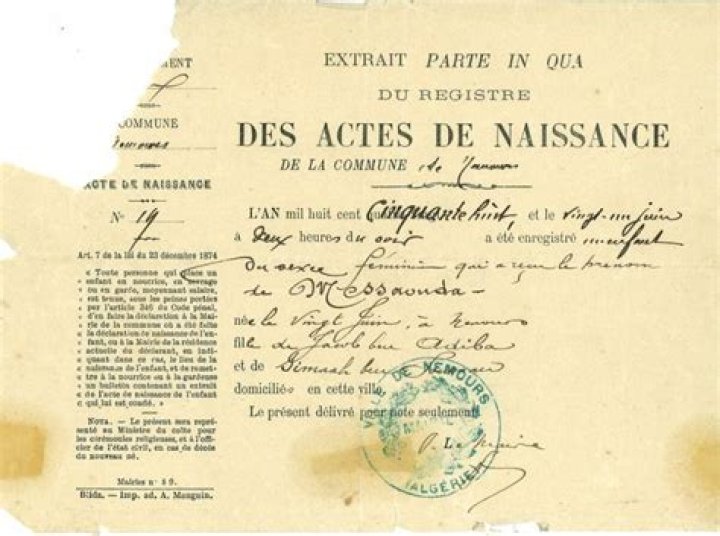 MENT
COMMUNE
Nemours
ACTE DE NAISSANCE
N° 19
Art. 7 de la loi du 23 décembre 1874
« Toute personne qui place un
« enfant en nourrice, en sevrage
« ou en garde, moyennant salaire,
« est tenue, sous les peines portées
« par l'article 346 du Code pénal,
« d'en faire la déclaration à la Mai-
« rie de la commune où a été faite
« la déclaration de naissance de l'en-
« fant, ou à la Mairie de la résidence
« actuelle du déclarant, en indi-
« quant dans ce cas, le lieu de la
« naissance de l'enfant, et de remet-
« tre à la nourrice ou à la gardeuse
« un bulletin contenant un extrait
« de l'acte de naissance de l'enfant
« qui lui est confié. »
NOTA. — Le présent sera repré-
senté au Ministre du culte pour
les cérémonies religieuses, et à l'offi-
cier de l'état civil, en cas de décès
du nouveau né.
Mairies n° 89.
Blida. — Imp. ad. A. Mauguin.
EXTRAIT PARTE IN QUA
DU REGISTRE
DES ACTES DE NAISSANCE
DE LA COMMUNE de Nemours
L'AN mil huit cent cinquante huit, et le vingt-un juin
à deux heures du soir a été enregistré un enfant
du sexe féminin qui a reçu le prénom
de Messaouda —
née le vingt juin, à Nemours
fille de Jacob ben Adiba
et de Simah ben
domiciliés en cette ville.
Le présent délivré pour note seulement
P. Le Maire
VILLE DE NEMOURS
(ALGÉRIE)